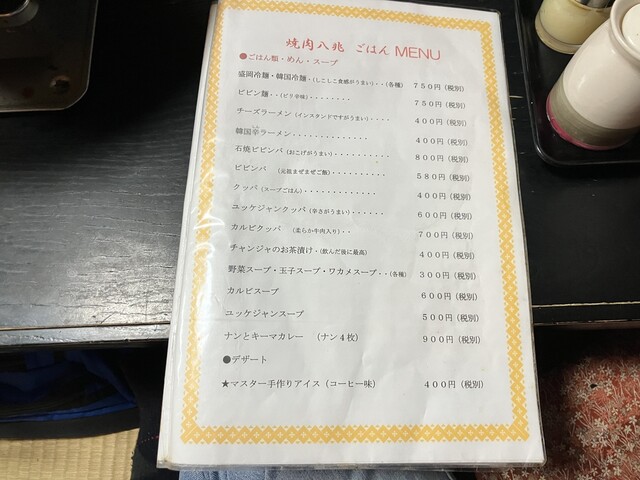 焼肉八兆 ごはん MENU
●ごはん類・めん・スープ
盛岡冷麺・韓国冷麺・(しこしこ食感がうまい)・・(各種) 750円(税別)
ビビン麺・・(ピリ辛味)・・・・・・・・ 750円(税別)
チーズラーメン(インスタントですがうまい)・・・・ 400円(税別)
韓国辛ラーメン・・・・・・・・・・・・・・ 400円(税別)
石焼ビビンバ(おこげがうまい)・・・・・・・・・・ 800円(税別)
ビビンバ (元祖まぜまぜご飯)・・・・・・・・・・ 580円(税別)
クッパ(スープごはん)・・・・・・・・・・・・ 400円(税別)
ユッケジャンクッパ(辛さがうまい)・・・・・・ 600円(税別)
カルビクッパ (柔らか牛肉入り)・・ 700円(税別)
チャンジャのお茶漬け・(飲んだ後に最高) 400円(税別)
野菜スープ・玉子スープ・ワカメスープ・・(各種) 300円(税別)
カルビスープ 600円(税別)
ユッケジャンスープ 500円(税別)
ナンとキーマカレー (ナン4枚) 900円(税別)
●デザート
★マスター手作りアイス(コーヒー味) 400円(税別)